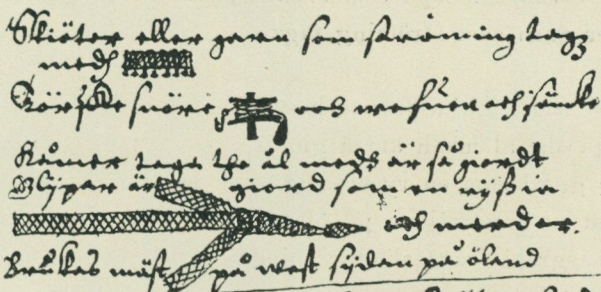 Skiöter eller garn som ströming tagz
medh
Törskle snöre och wefuen och sänke
Kåmer taga the ål medh är så giordt
Blypar är giord som en ryssia
och merdar.
Brukes mäst på west sijdan på öland